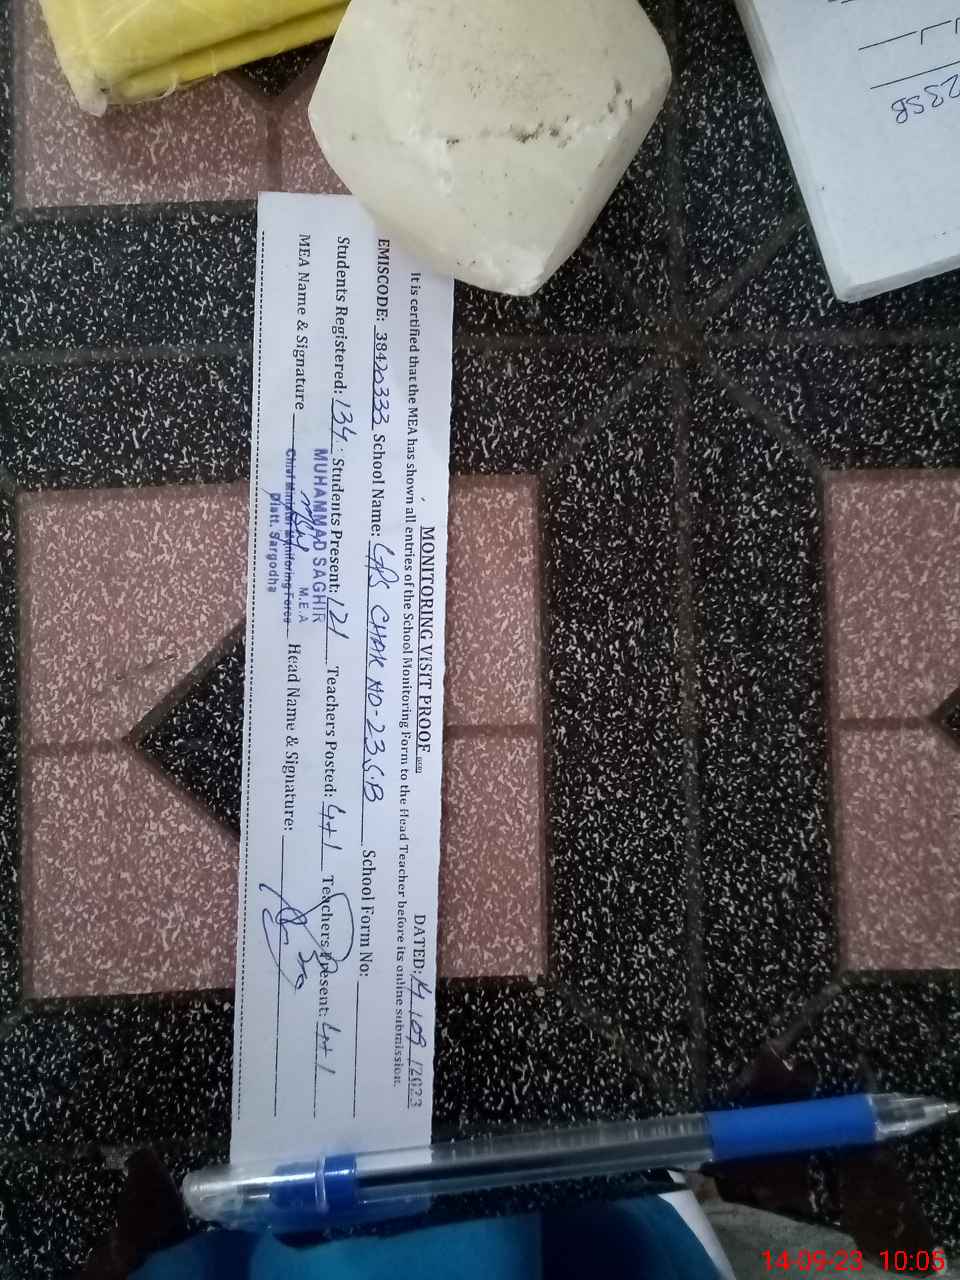 MONITORING VISIT PROOF DATED: 14/09/2023
It is certified that the MEA has shown all entries of the School Monitoring Form to the Head Teacher before its online submission.
EMISCODE: 38420333 School Name: GPS CHAK NO-23 S.B School Form No:
Students Registered: 134 Students Present: 121 Teachers Posted: 4+1 Teachers Present: 4+1
MEA Name & Signature Head Name & Signature:
MUHAMMAD SAGHIR
M.E.A
Chief Minister Monitoring Force
Distt. Sargodha
23SB
14-09-23 10:05